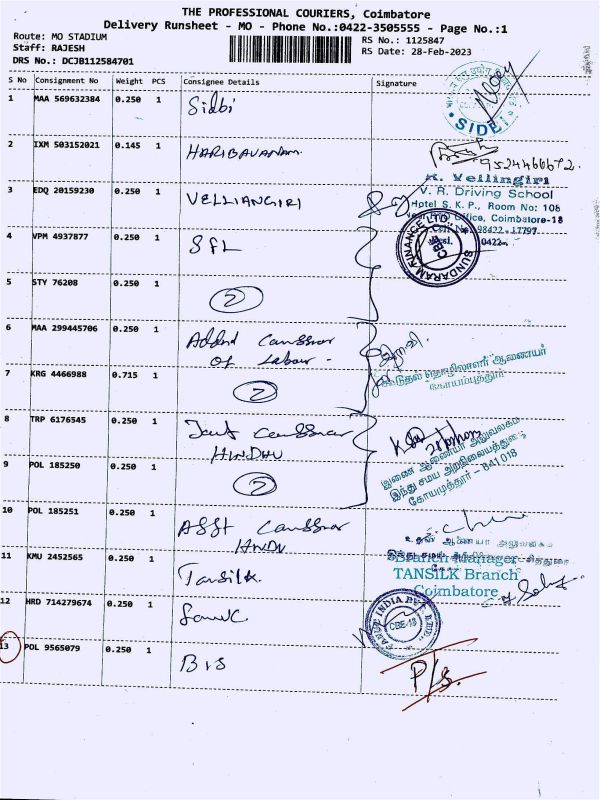 THE PROFESSIONAL COURIERS, Coimbatore
Delivery Runsheet - MO - Phone No.:0422-3505555 - Page No.:1
Route: MO STADIUM
Staff: RAJESH
DRS No.: DCJB112584701
RS No.: 1125847
RS Date: 28-Feb-2023
S No Consignment No Weight PCS Consignee Details Signature
1 MAA 569632384 0.250 1 Sidbi
SIDBI
2 IXM 503152021 0.145 1 HARIBAVANAM
9524466672
3 EDQ 20159230 0.250 1 VELLIANGIRI
K. Vellingiri
V. R. Driving School
Hotel S. K. P., Room No: 106
Office, Coimbatore-18
4 VPM 4937877 0.250 1 SFL
SUNDARAM FINANCE LTD
CBE
0422
5 STY 76208 0.250 1
2
6 MAA 299445706 0.250 1 Addnl
of Labour -
கூடுதல் தொழிலாளர் ஆணையர்
கோயம்புத்தூர்
7 KRG 4466988 0.715 1
2
8 TRP 6176545 0.250 1 Joint
HINDHU
இணை ஆணையர் அலுவலகம்
இந்து சமய அறநிலையத்துறை
கோயமுத்தூர் - 641 018
9 POL 185250 0.250 1
2
10 POL 185251 0.250 1 Asst
HINDU
11 KMU 2452565 0.250 1 Tansilk
Branch Manager
TANSILK Branch
Coimbatore
12 HRD 714279674 0.250 1
INDIA PVT LTD
CBE-18
13 POL 9565079 0.250 1 BIS
P/S.